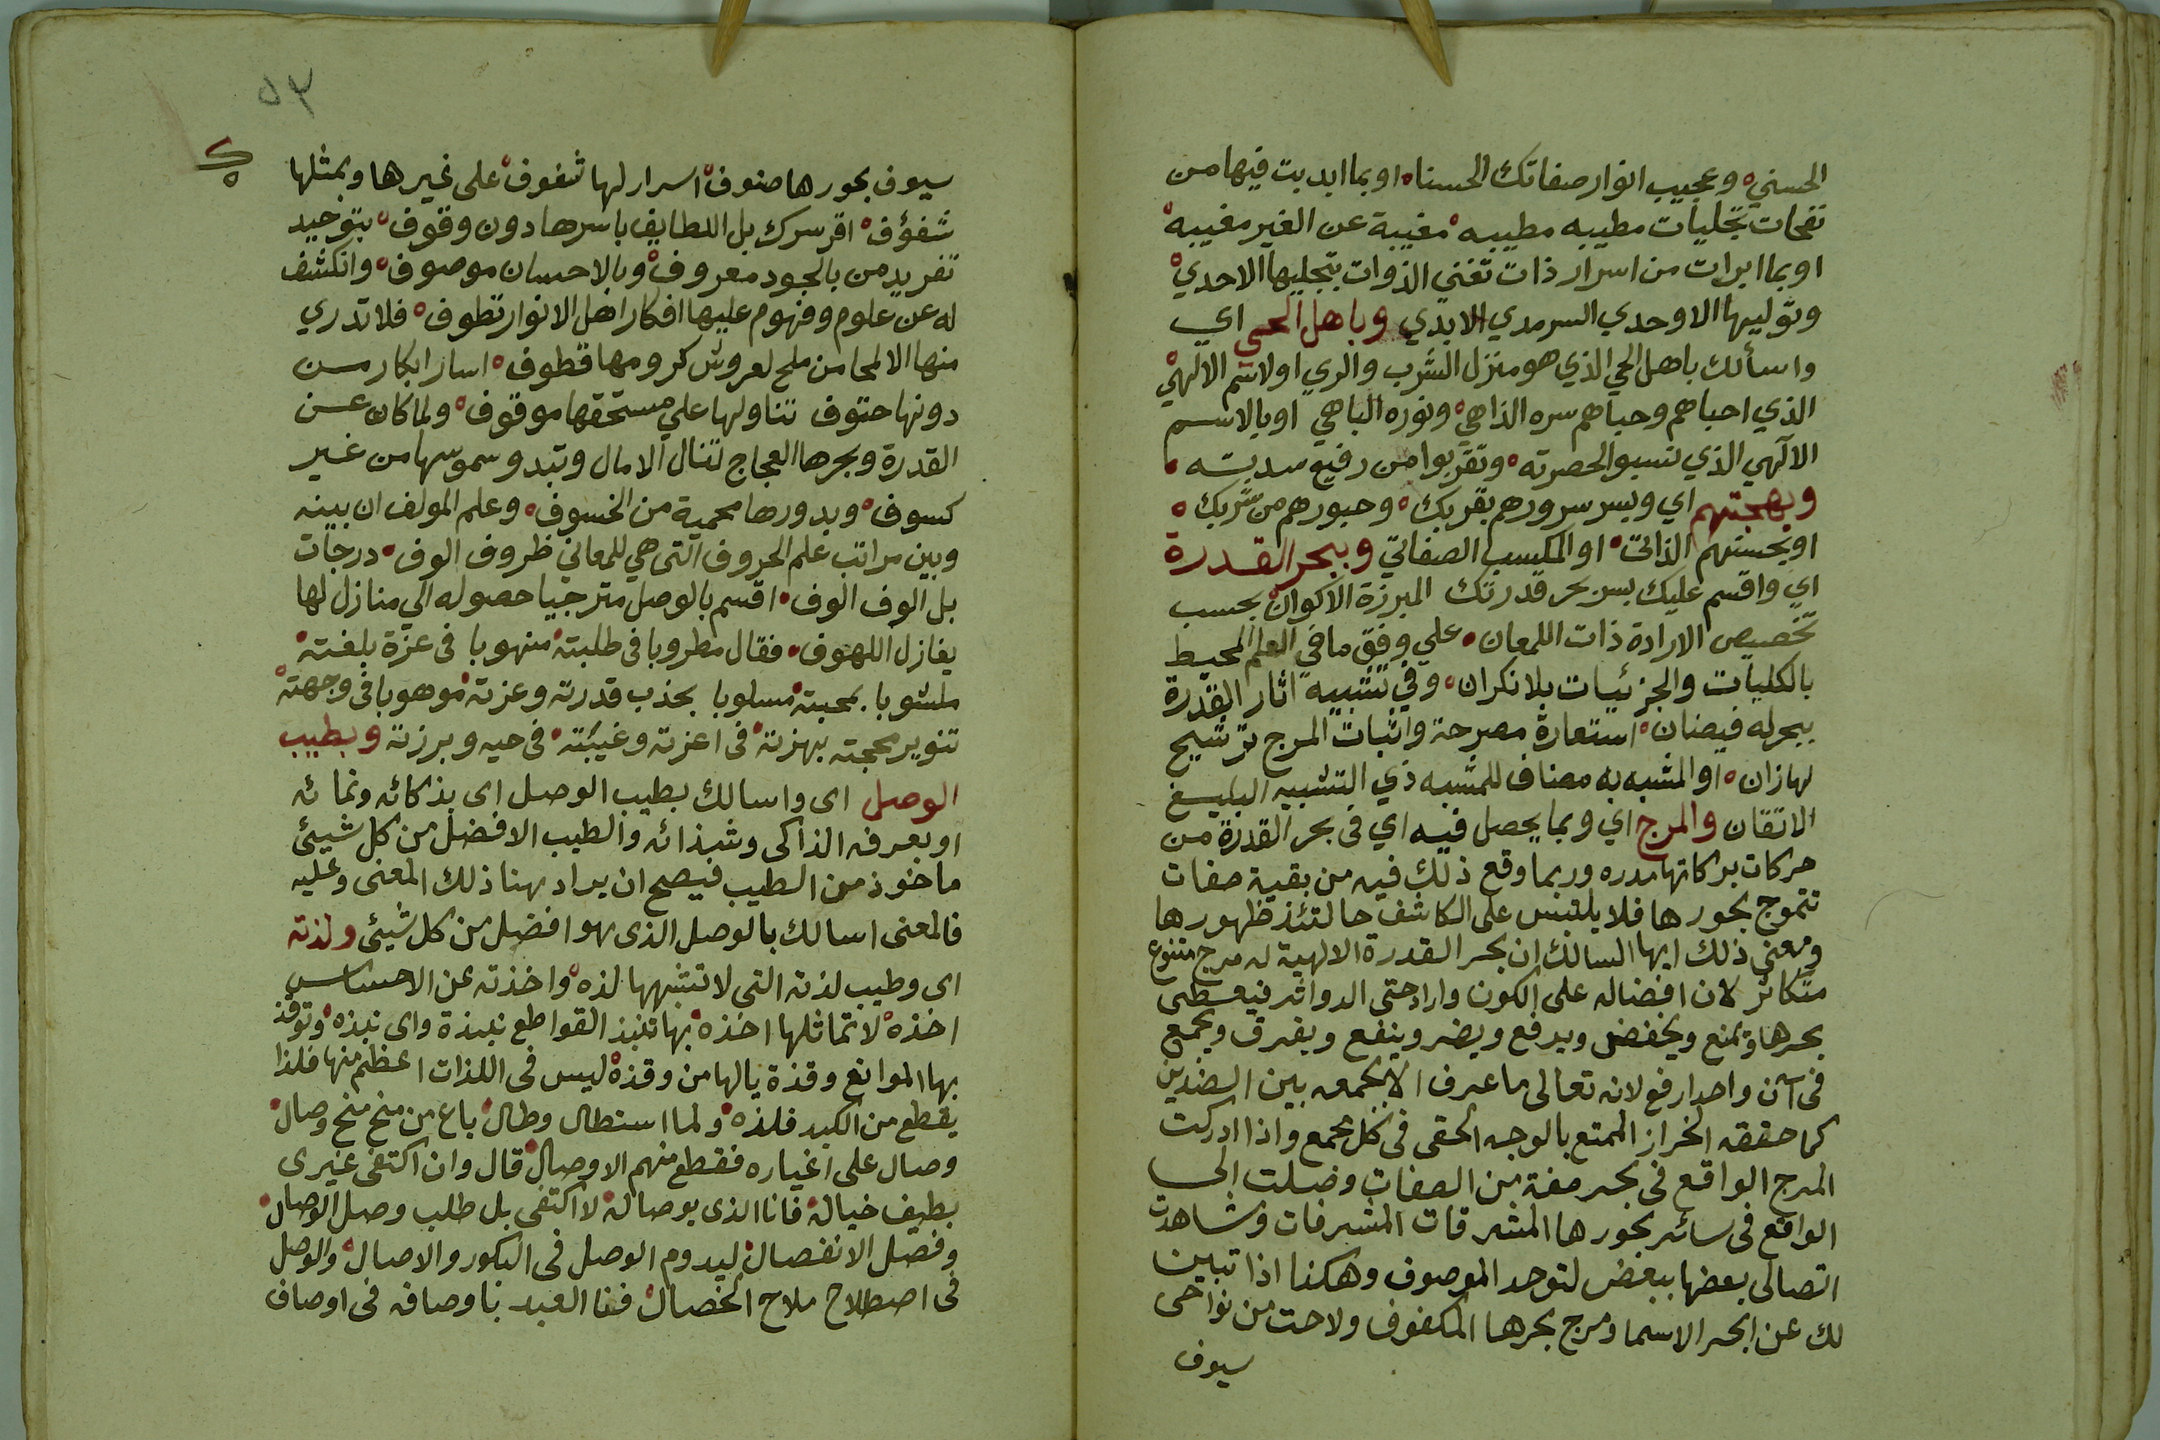 الحسني وعجيب انوار صفاتك الحسنا اوبما ابديت فيها من
نفحات تجليات مطيبه مطيبه مغيبة عن الغير مغيبه
اوبما ابرات من اسرار ذات تغني الذوات بتجليها الاحدي
وتوليها الاوحدي السرمدي الابدي وباهل الحي اي
واسألك باهل الحي الذي هو منزل الشرب والري اولاسم الالهي
الذي احباهم وحباهم سره الذاهي ونوره الباهي اوبالاسم
الالهي الذي نسبوا لحضرته وتقربوا من رفيع سدته
وبهجتهم اي وبسر سرورهم بقربك وحبورهم من شربك
اوبحسنهم الذاتي او المكسب الصفاتي وببحر القدرة
اي واقسم عليك بسر بحر قدرتك المبرزة الاكوان بحسب
تخصيص الارادة ذات اللمعان علي وفق ما في العلم المحيط
بالكليات والجزئيات بلا نكران وفي تشبيه اثار القدرة
ببحر له فيضان استعارة مصرحة واثبات المرج ترشيح
لها زان او المشبه به مضاف للمشبه ذي التشبيه البليغ
الاتقان والمرج اي وبما يحصل فيه اي في بحر القدرة من
حركات بركاتها مدره وربما وقع ذلك فيه من بقية صفات
تتموج بحورها فلا يلتبس على الكاشف حالتئذ ظهورها
ومعني ذلك ايها السالك ان بحر القدرة الالهية له مرج متنوع
متكاثر لان افضاله على الكون واراد حتى الدواثر فيعطى
بحرها ويمنع ويخفض ويرفع ويضر وينفع ويفرق ويجمع
فى آن واحد ارفع لانه تعالى ما عرف الا بجمعه بين الضدين
كما حققه الخراز الممتع بالوجه الحقى فى كل مجمع واذا ادركت
المرج الواقع فى بحر صفة من الصفات وضلت الى
الواقع فى سائر بحورها المشرقات المشرفات وشاهدت
اتصالى بعضها ببعض لتوحد الموصوف وهكذا اذا تبين
لك عن ابحر الاسما ومرج بحرها المكفوف ولاحت من نواحى
سيوف
٥٣
سيوف بحورها صنوف اسرار لها شفوف على غيرها وبمثلها
شفؤف اقر سرك بل اللطايف باسرها دون وقوف بتوحيد
تفريد من بالجود معروف وبالاحسان موصوف وانكشف
له عن علوم وفهوم عليها افكار اهل الانوار تطوف فلا تدري
منها الا لمحا من ملح لعروش كرومها قطوف اسار ابكار من
دونها حتوف تناولها علي مستحقها موقوف ولما كان عن
القدرة وبحرها العجاج تنال الامال وتبدو سموسها من غير
كسوف وبدورها محمية من الخسوف وعلم المولف ان بينه
وبين مراتب علم الحروف التي هي للمعاني ظروف الوف درجات
بل الوف الوف اقسم بالوصل مترجيا حصوله الي منازل لها
يغازل اللهوف فقال مطروبا في طلبته منهوبا في عزة بلغته
ملشوبا بمحبته مسلوبا بجذب قدرته وعزته موهوبا في وجهته
تنوير محجته بهزته فى اعزته وغيبته فى حيه وبرزته وبطيب
الوصل اى واسالك بطيب الوصل اى بذكائه ونمائه
اوبعرفه الذاكى وشذائه والطيب الافضل من كل شيئى
ماخوذ من الطيب فيصح ان يراد بهنا ذلك المعنى وعليه
فالمعنى اسالك بالوصل الذى هو افضل من كل شيئى ولذته
اى وطيب لذته التى لا تشبهها لذه واخذته عن الاحساس
اخذه لا تماثلها اخذه بها تنبذ القواطع نبذة واى نبذه وتوقذ
بها الموانع وقذة يالها من وقذة ليس فى اللذات اعظم منها فلذا
يقطع من الكبد فلذه ولما استطال وطال باع من منح منح وصال
وصال على اغياره فقطع منهم الاوصال قال وان اكتفى غيرى
بطيف خياله فانا الذى بوصاله لا اكتفى بل طلب وصل الوصال
وفصل الانفصال ليدوم الوصل فى البكور والاصال والوصل
فى اصطلاح ملاح الخصال فنا العبد باوصافه فى اوصاف